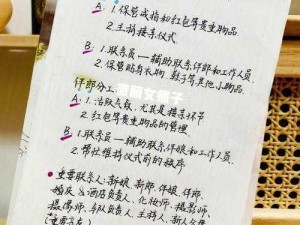 A: 1.保管戒指和红包等贵重物品
2.主持接亲仪式
B: 1.联系员—辅助联系伴郎和工作人员
2.保管贴身衣物、鞋子等其他小物品
伴郎分工
A: 1.活跃气氛,尤其是接亲环节
2.红包等贵重物品的管理
B: 1.联系员—辅助联系伴郎和工作人员
2.帮忙维持仪式前的秩序
重要联系人:新娘、新郎、伴娘、伴郎、
婚庆&酒店负责人、化妆师、摄影师、
摄像师、车队负责人、主持人、新人父母